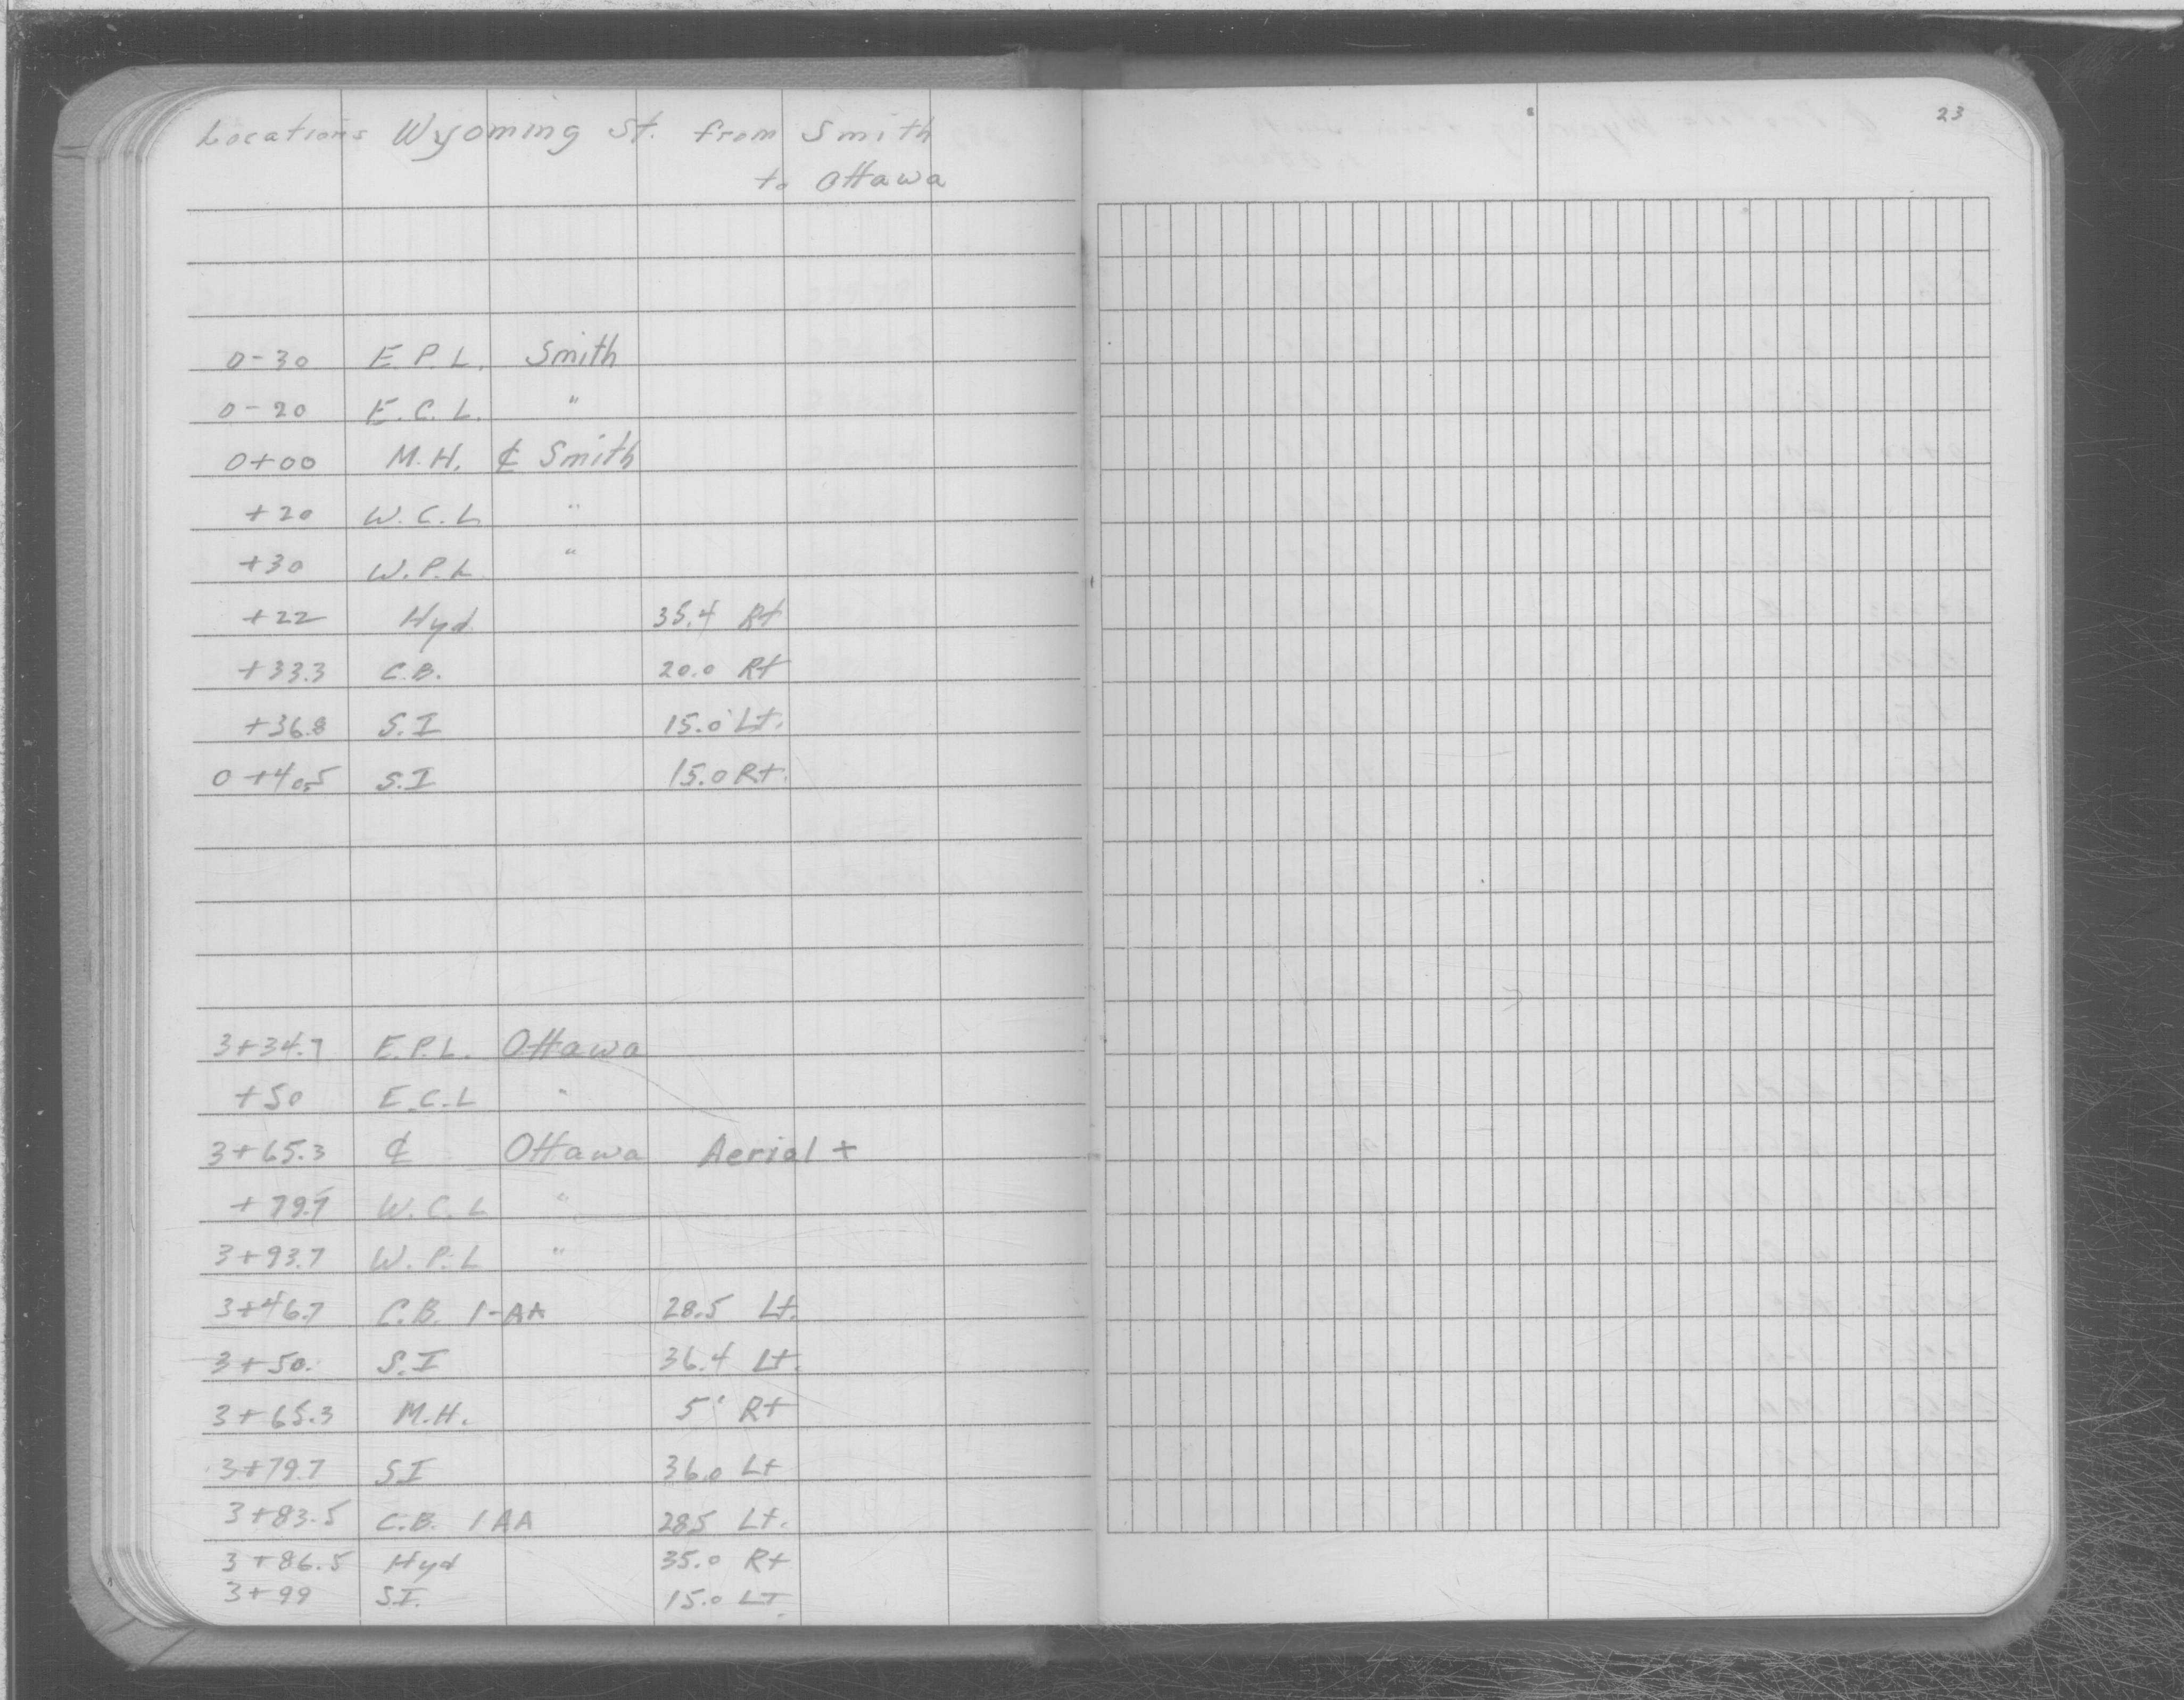 Locations Wyoming St. from Smith
to Ottawa
23
0-30 E.P.L. Smith
0-20 E.C.L. "
0+00 M.H. ₵ Smith
+20 W.C.L "
+30 W.P.L "
+22 Hyd 35.4 Rt
+33.3 C.B. 20.0 Rt
+36.8 S.I 15.0' Lt.
0+40.5 S.I 15.0 Rt.
3+34.7 E.P.L. Ottawa
+50 E.C.L "
3+65.3 ₵ Ottawa Aerial +
+79.7 W.C.L "
3+93.7 W.P.L "
3+46.7 C.B. 1-AA 28.5 Lt.
3+50. S.I 36.4 Lt.
3+65.3 M.H. 5' Rt
3+79.7 S.I 36.0 Lt
3+83.5 C.B. 1 AA 28.5 Lt.
3+86.5 Hyd 35.0 Rt
3+99 S.I. 15.0 LT.